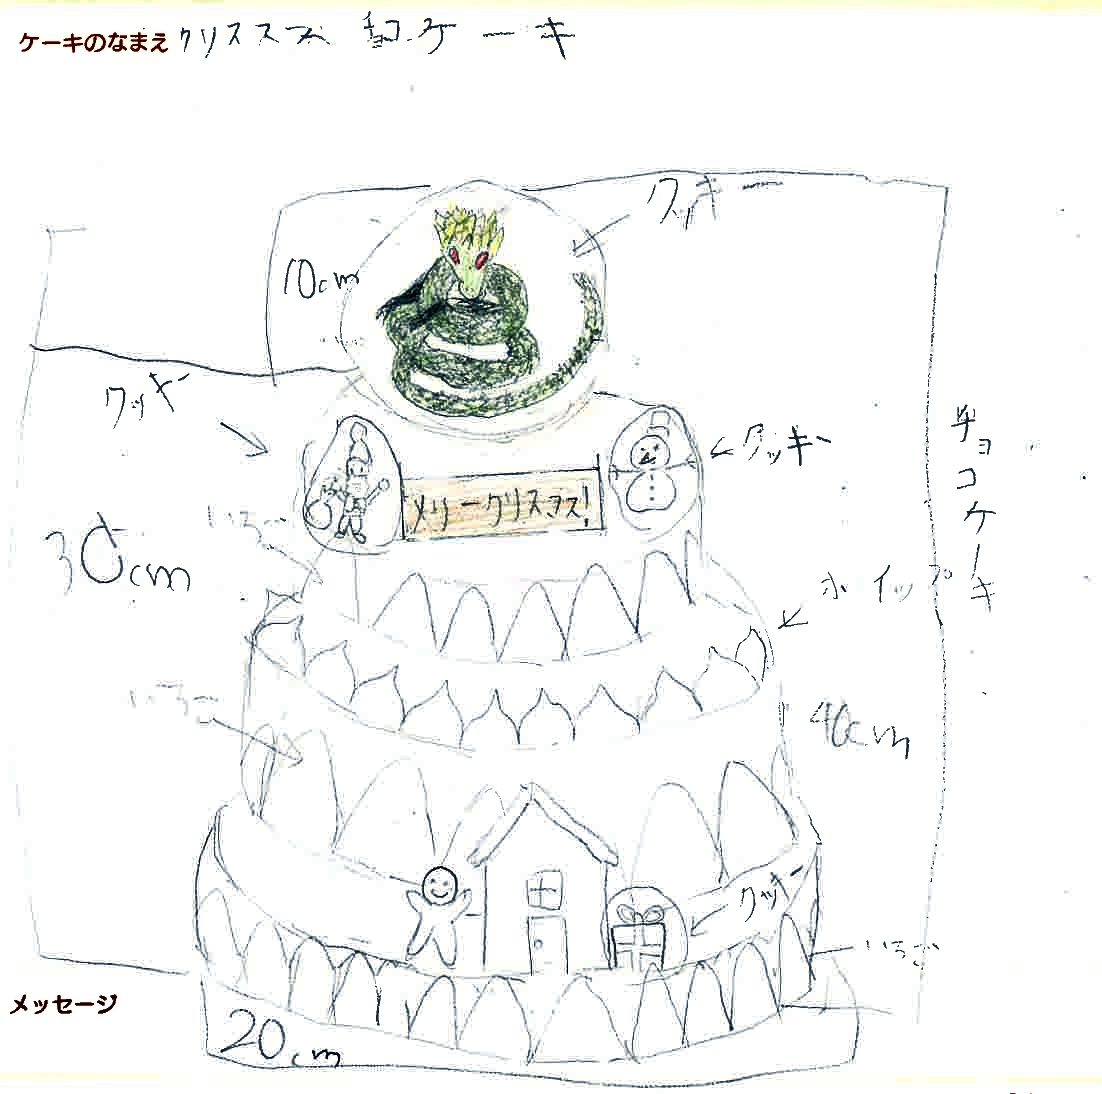 ケーキのなまえ クリススマス チョコケーキ
クッキー
10cm
クッキー
クッキー
チョコケーキ
メリークリスマス!
いちご
30cm
ホイップ
いちご
40cm
クッキー
いちご
メッセージ
20cm